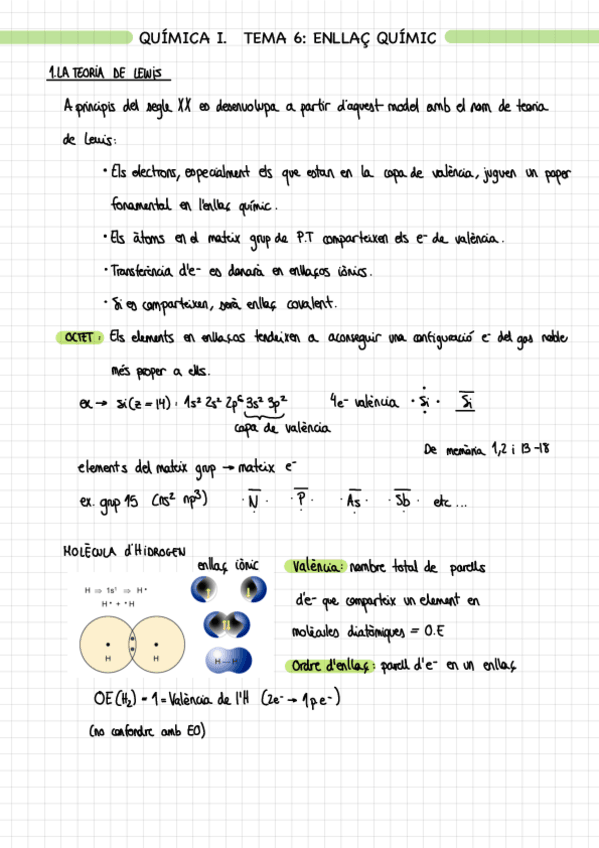 QUÍMICA I. TEMA 6: ENLLAÇ QUÍMIC
1. LA TEORIA DE LEWIS
A principis del segle XX es desenvolupa a partir d'aquest model amb el nom de teoria
de Lewis:
• Els electrons, especialment els que estan en la capa de valència, juguen un paper
fonamental en l'enllaç químic.
• Els àtoms en el mateix grup de P.T comparteixen els e- de valència.
• Transferència d'e- es donarà en enllaços iònics.
• Si es comparteixen, serà enllaç covalent.
OCTET: Els elements en enllaços tendeixen a aconseguir una configuració e- del gas noble
més proper a ells.
ex → Si (z=14): 1s² 2s² 2p⁶ 3s² 3p² 4e- valència · Si · Si
capa de valència
De memòria 1,2 i 13-18
elements del mateix grup → mateix e-
ex. grup 15 (ns² np³) · N · · P · · As · · Sb · etc...
MOLÈCULA d'HIDROGEN
enllaç iònic
H ⇒ 1s¹ ⇒ H•
H• + •H
H H
H—H
València: nombre total de parells
d'e- que comparteix un element en
molècules diatòmiques = O.E
Ordre d'enllaç: parell d'e- en un enllaç
OE(H₂) = 1 = València de l'H (2e- → 1 p.e-)
(no confondre amb EO)